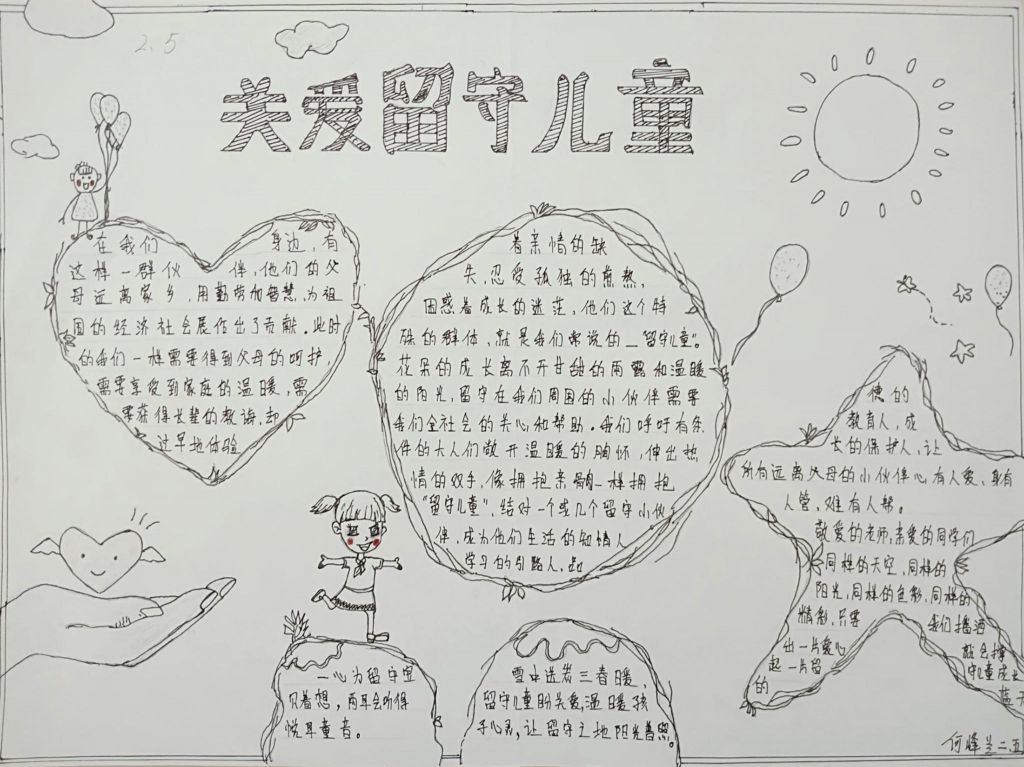 2.5
关爱留守儿童
在我们 身边,有
这样一群伙伴,他们的父
母远离家乡,用勤劳和智慧,为祖
国的经济社会展作出了贡献。此时
的我们一样需要得到父母的呵护,
需要享受到家庭的温暖,需
要获得长辈的教诲,却
过早地体验
着亲情的缺
失,忍受孤独的煎熬,
困惑着成长的迷茫,他们这个特
殊的群体,就是我们常说的—"留守儿童"。
花朵的成长离不开甘甜的雨露和温暖
的阳光,留守在我们周围的小伙伴需要
我们全社会的关心和帮助。我们呼吁有条
件的大人们敞开温暖的胸怀,伸出热
情的双手,像拥抱亲骨肉一样拥抱
"留守儿童",结对一个或几个留守小伙
伴,成为他们生活的知情人
学习的引路人,品
德的
教育人,成
长的保护人,让
所有远离父母的小伙伴心有人爱,身有
人管,难有人帮。
敬爱的老师,亲爱的同学们
同样的天空,同样的
阳光,同样的色彩,同样的
精彩,只要 我们播洒
出一片爱心 就会撑
起一片留 守儿童成长
的 蓝天
一心为留守宝
贝着想,两耳会听得
悦耳童音。
雪中送炭三春暖,
留守儿童盼关爱,温暖孩
子心灵,让留守之地阳光普照。
何峰兰二.五